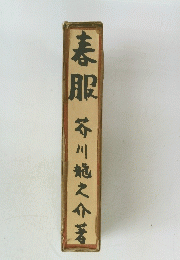 春服
芥川龍之介著